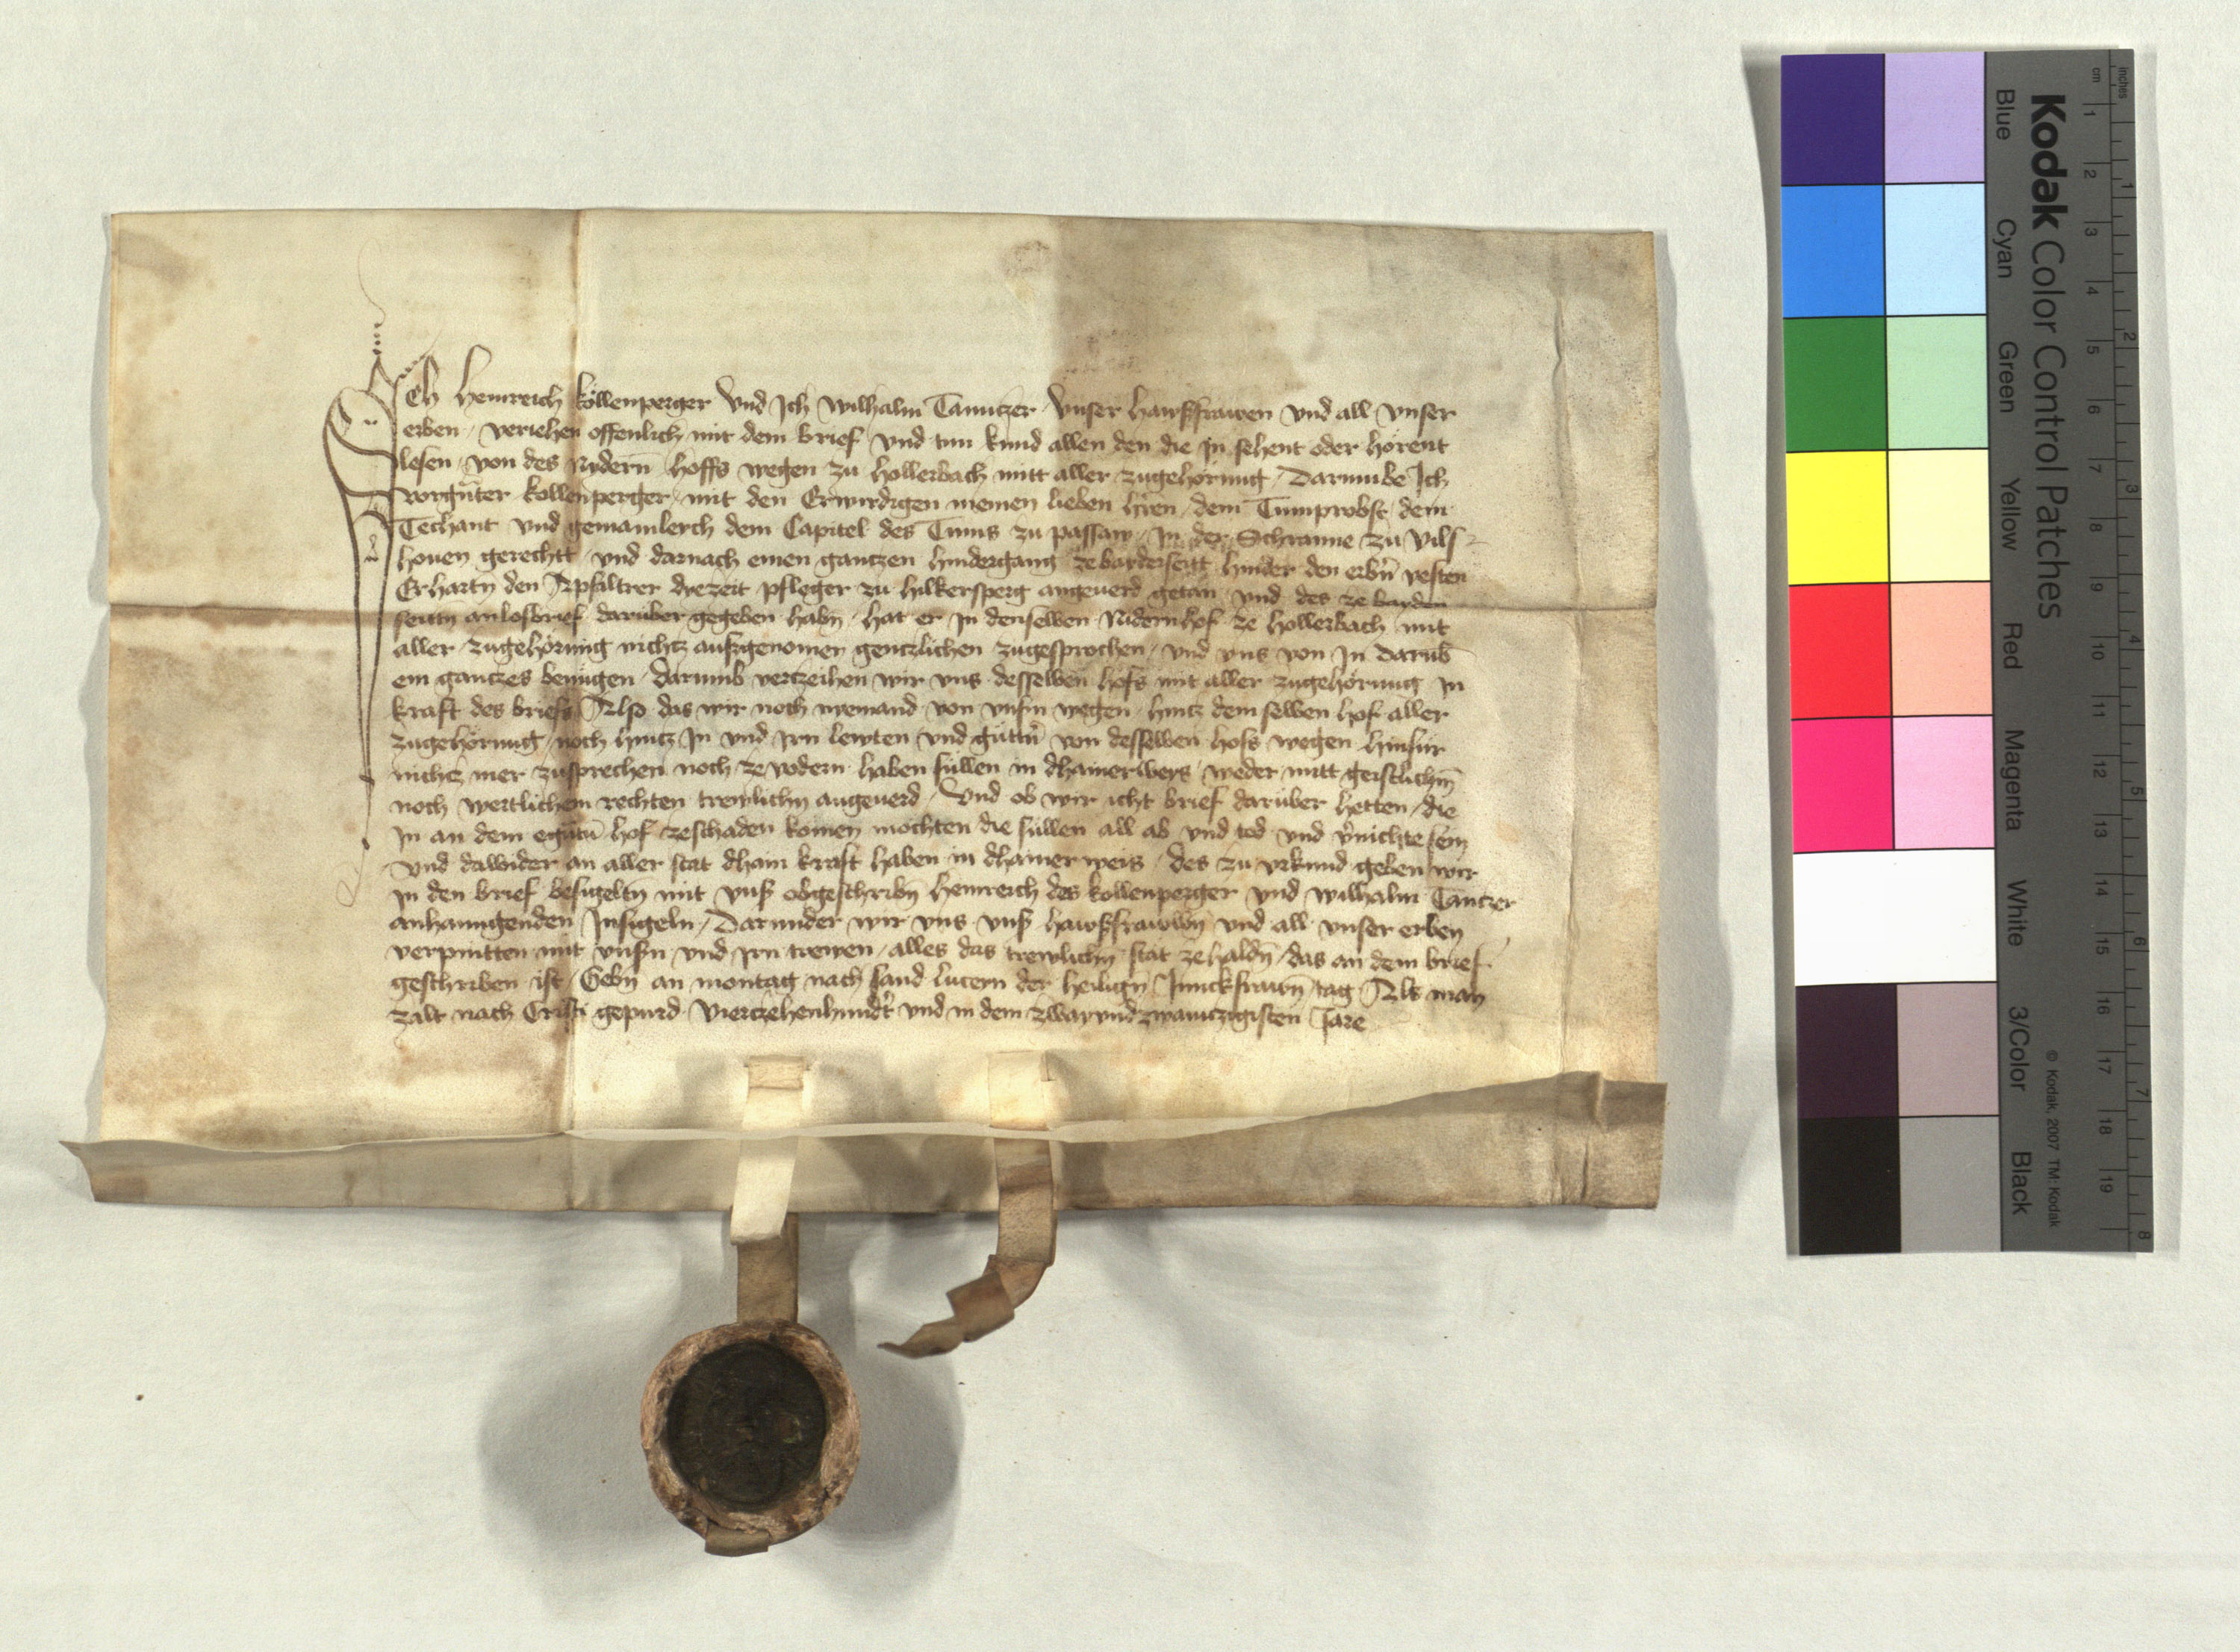 Ich Heinreich Köllenperger Vnd Ich Wilhalm Tanntzer Vnser hawsfrawen vnd all vnser
erben veriehen offenlich mit dem brief vnd tun kund allen den die in sehent oder hörent
lesen von des Nydern hoffs wegen zu Hollerbach mitt aller zugehörung Darumbe Ich
vorgnter Kollenperger mit den Erwirdigen meinen lieben hren dem Tumprobst dem
Techant vnd gemainlerch dem Capitel des Tums zu passaw In der Schranne zu Vils
houen gerechtt vnd darnach einen gantzen hindergang ze bayderseitt hinder den erbn vesten
Erhartn den Apfiltrer diezeit pfleger zu hilkersperg angeuerd getan vnd des ze bayden
seittn anlosbrief darüber gegeben habn hat er in denselben Nidernhof ze Hollerbach mit
aller zugehörung nichtz aufzgenomen gentzlichen zugesprochen vnd vns von In darub
ein gantzes benügen Darumb vertzeihen wir vns desselben hofs mit aller zugehörung in
kraft des briefs Also das wir noch niemand von vnsn wegen hintz dem selben hof aller
zugehörung noch hintz In vnd irn lewten vnd güttn von desselben hofs wegen hinfür
nichtz mer zusprechen noch ze vodern haben süllen in dhainerweys weder mitt geistlichn
noch wertlichem rechten trewlichn angeuerd Vnd ob wir icht brief darüber hetten die
In an dem egntn hof zeschaden komen mochten die süllen all ab vnd tod vnd vnichte sein
vnd dawider an aller stat dhain kraft haben in dhainer weis des zu vrkund geben wir
in den brief besigeltn mit vnss obgeschribn Heinreich des Kollenperger vnd Wilhalm Tantzer
anhanngenden Insigeln Darunder wir vns vnss hawsfrawn vnd all vnser erben
verpintten mit vnsn vnd irn trewen alles das trewlichn stät zehaldn das an dem brief
geschriben ist Gebn an montag nach sand lucein der heilign Junckfrawn tag Als man
zalt nach Cristi gepurd Viertzehenhundt vnd in dem zwayvndzwaintzigisten Jare
Kodak Color Control Patches
Blue Cyan Green Yellow Red Magenta White 3/Color Black
© Kodak, 2007 TM: Kodak
inches 1 2 3 4 5 6 7 8
cm 1 2 3 4 5 6 7 8 9 10 11 12 13 14 15 16 17 18 19